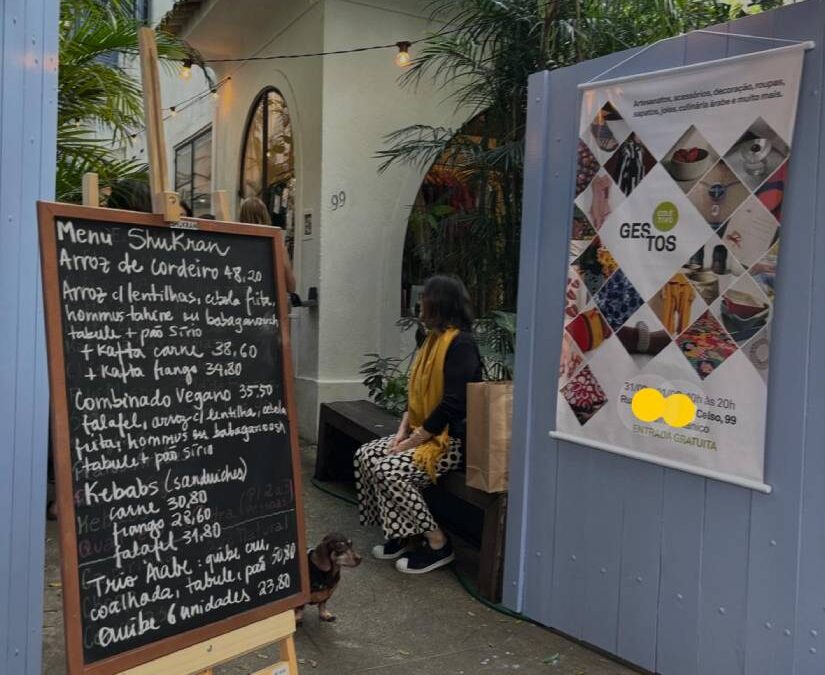 Menu ShuKran
Arroz de Cordeiro 48,20
Arroz c/ lentilhas, cebola frita,
hommus-tahine ou babaganoush
tabule + pão sírio
+ Kafta carne 38,60
+ Kafta frango 34,80
Combinado Vegano 35,50
falafel, arroz c/ lentilha, cebola
frita, hommus ou babaganoush
tabule + pão sírio
Kebabs (sanduiches)
carne 30,80
frango 28,60
falafel 31,80
Trio Árabe: quibe cru,
coalhada, tabule, pão 50,80
Quibe 6 unidades 23,80
99
Artesanatos, acessórios, decoração, roupas,
sapatos, joias, culinária árabe e muito mais.
COLE
TIVO
GES
TOS
às 20h
Celso, 99
ENTRADA GRATUITA